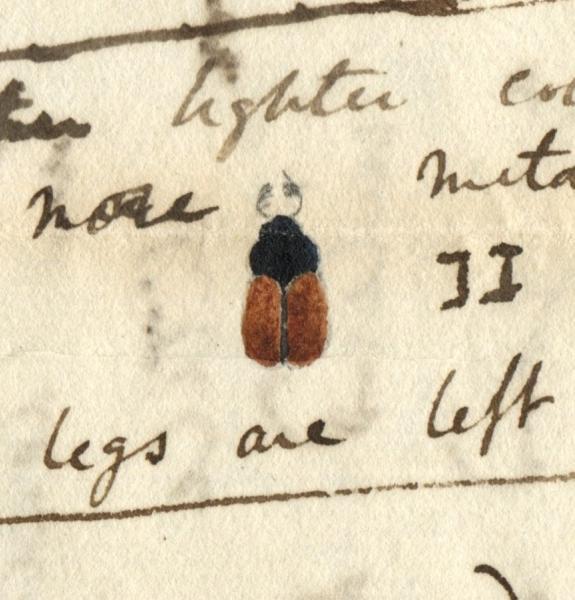 lighter
more
II
legs are left